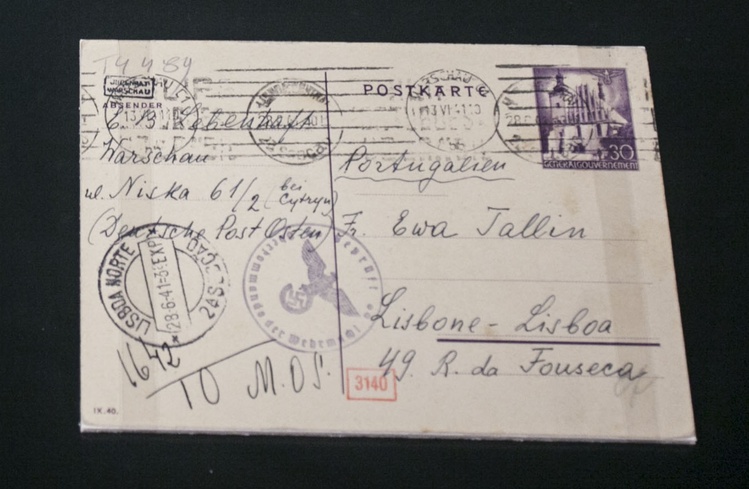 T4 4 84
JUDENRAT
WARSCHAU
ABSENDER
POSTKARTE
WARSCHAU
13.VI.41
30
GENERALGOUVERNEMENT
Warschau
ul. Niska 61/2 (bei Cytryn)
(Deutsche Post Osten)
Portugalien
Fr. Ewa Tallin
Lisbone - Lisboa
49. R. da Fonseca
LISBOA NORTE
28.6.41
2ASECÇÃO
geprüft
Oberkommando der Wehrmacht
1642
TO M.OS.
3140
IX.40.